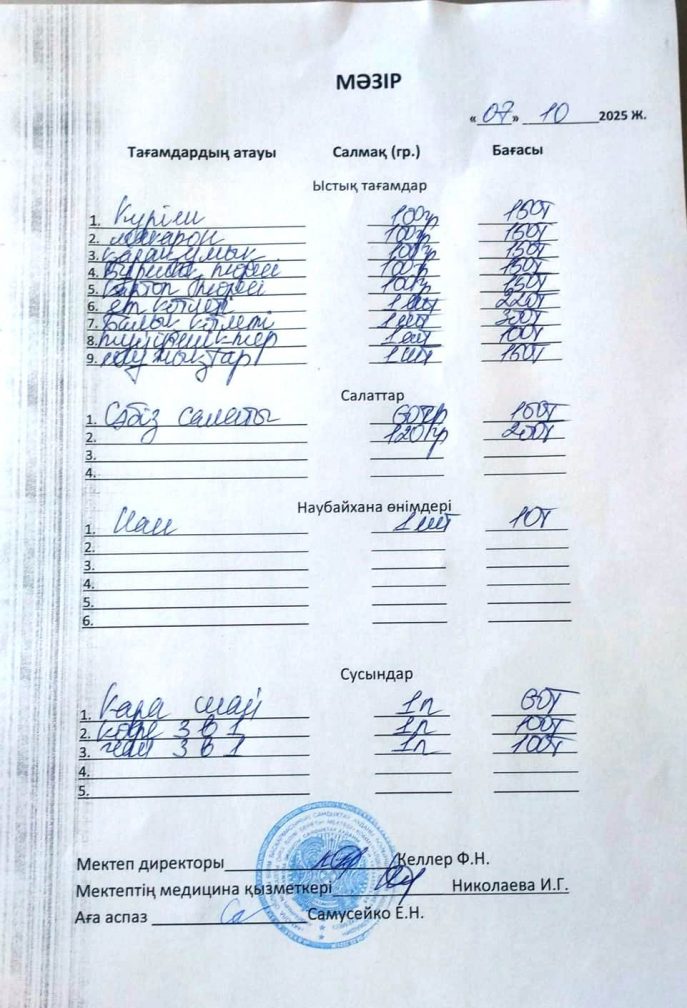 МӘЗІР
«07» 10 2025 Ж.
Тағамдардың атауы Салмақ (гр.) Бағасы
Ыстық тағамдар
1. Күріш 100гр 150т
2. макарон 100гр 150т
3. қарақұмық 100гр 150т
4. бұршақ пюресі 100гр 150т
5. картоп пюресі 100гр 150т
6. ет котлеті 1шт 220т
7. балық котлеті 1шт 300т
8. 1шт 100т
9. 1шт 150т
Салаттар
1. Сәбіз салаты 60гр 100т
2. 120гр 200т
3.
4.
Наубайхана өнімдері
1. Нан 1шт 10т
2.
3.
4.
5.
6.
Сусындар
1. Қара шай 1п 60т
2. кофе 3 в 1 1п 100т
3. чай 3 в 1 1п 100т
4.
5.
Мектеп директоры Келлер Ф.Н.
Мектептің медицина қызметкері Николаева И.Г.
Аға аспаз Самусейко Е.Н.